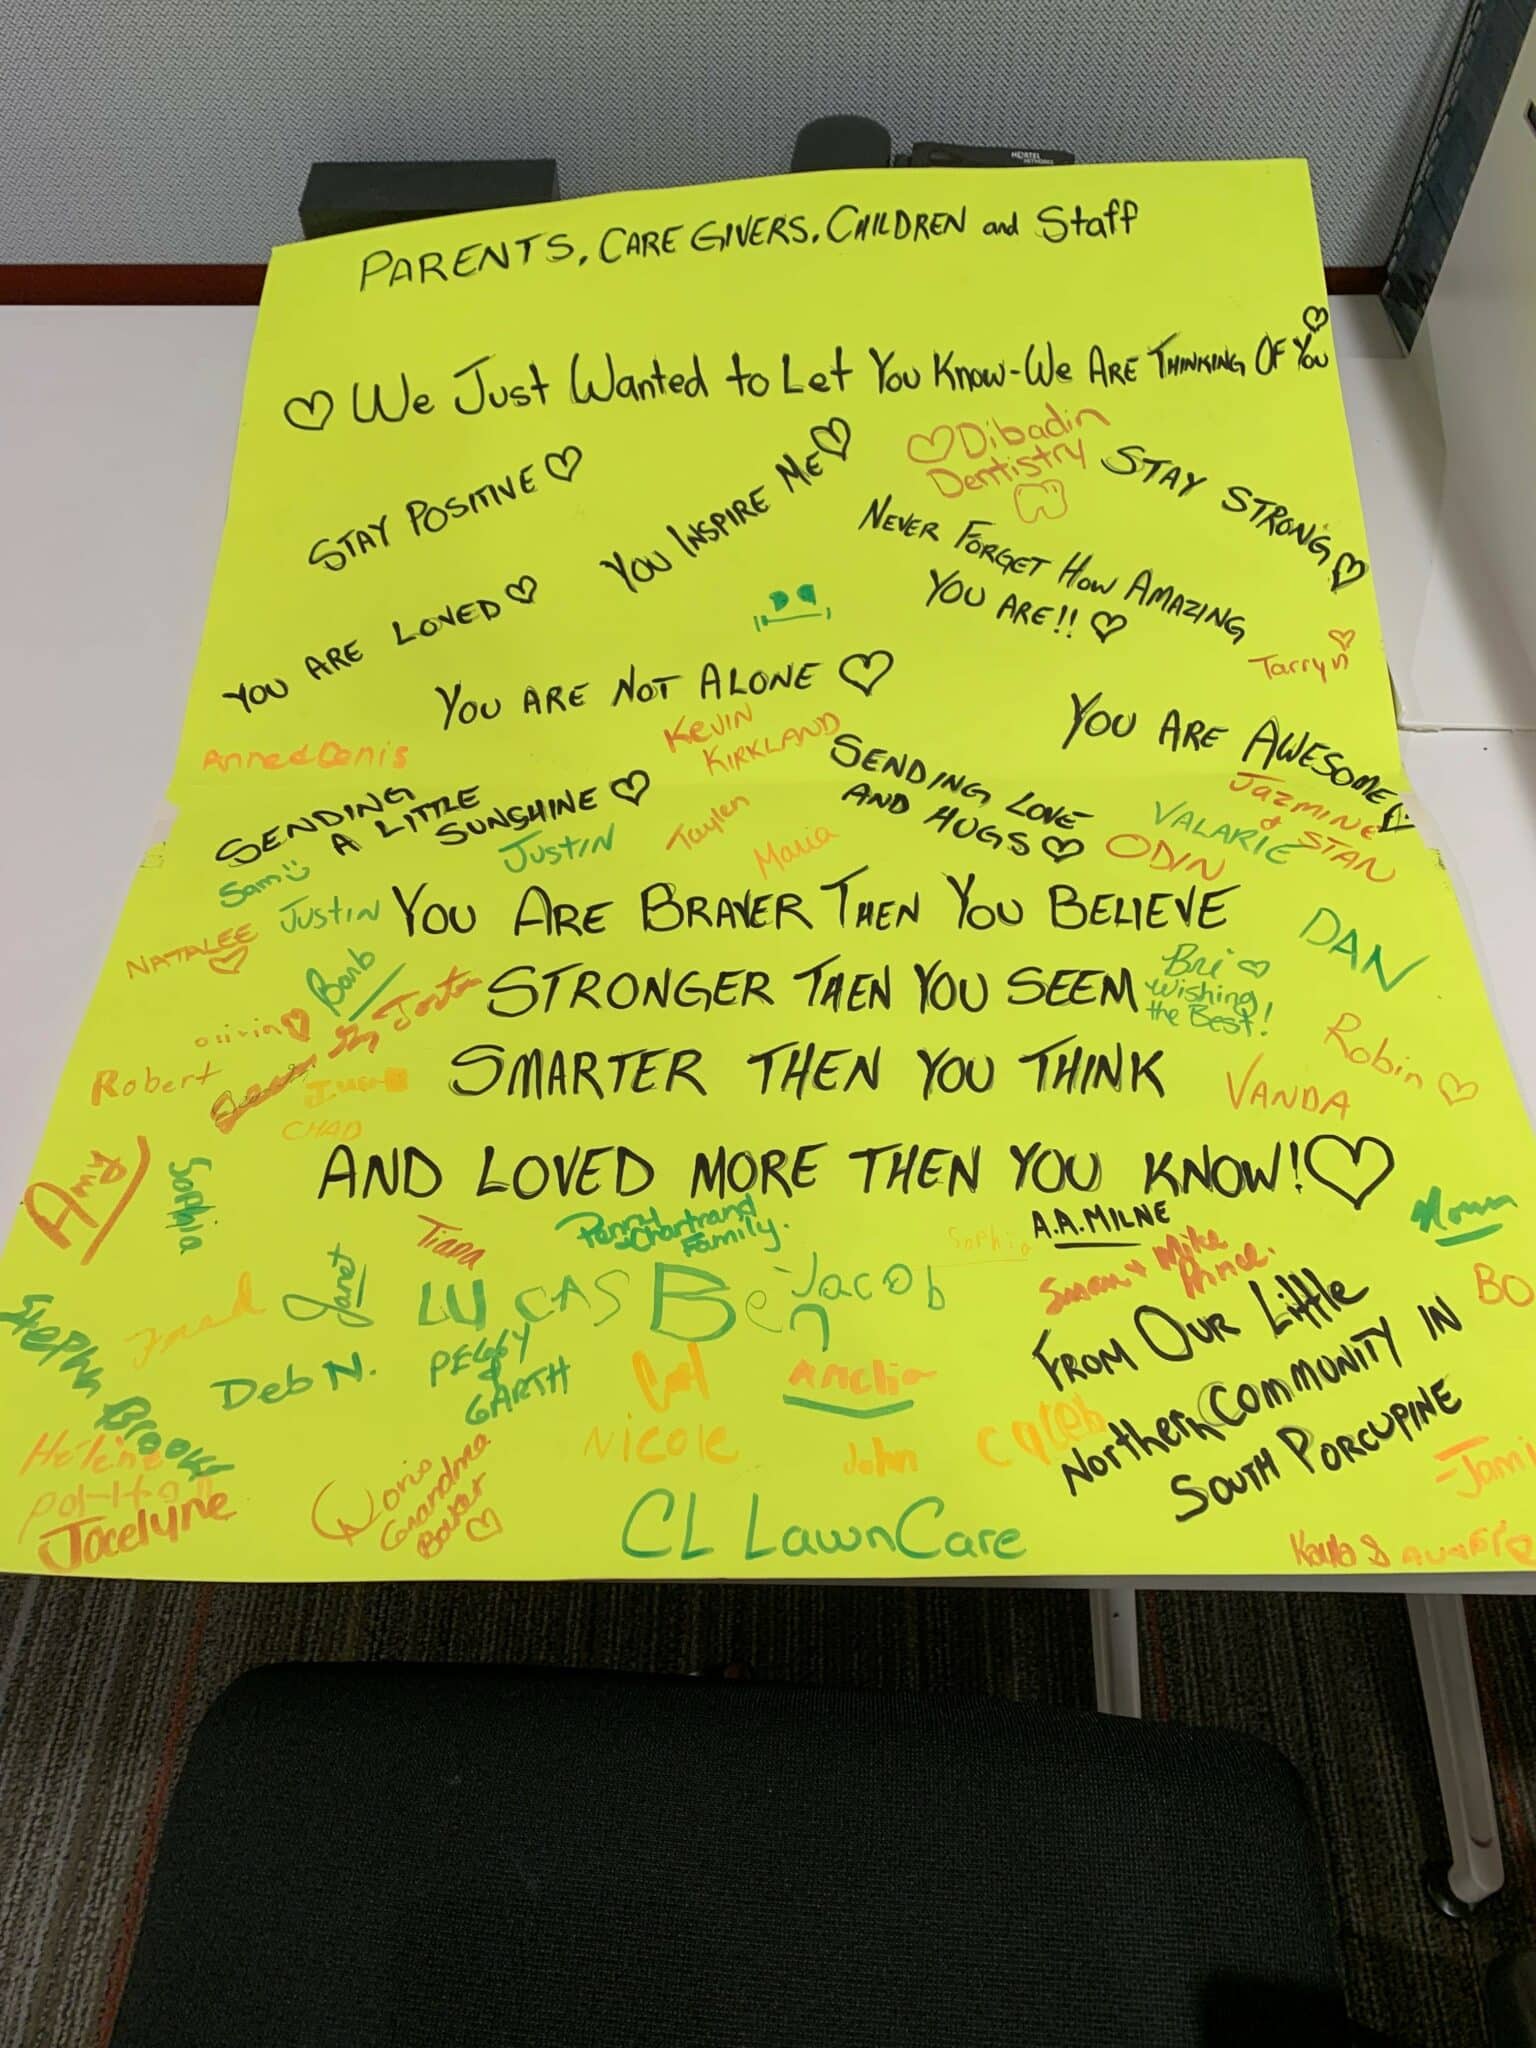 NORTEL
NETWORKS
PARENTS, CARE GIVERS, CHILDREN and Staff
We Just Wanted to Let You Know - We Are Thinking Of You
Dibadin
Dentistry
STAY POSITIVE
YOU INSPIRE ME
STAY STRONG
NEVER FORGET HOW AMAZING
YOU ARE!!
YOU ARE LOVED
Tarryn
YOU ARE NOT ALONE
YOU ARE AWESOME
KEVIN
KIRKLAND
SENDING
A LITTLE
SUNSHINE
SENDING LOVE
AND HUGS
JAZMINE
&
STAN
VALARIE
ODIN
Taylen
Maria
JUSTIN
Sam
JUSTIN
NATALEE
YOU ARE BRAVER THEN YOU BELIEVE
DAN
Barb
STRONGER THEN YOU SEEM
Bri
Wishing
the Best!
Robert
SMARTER THEN YOU THINK
Robin
VANDA
CHAD
AND LOVED MORE THEN YOU KNOW!
A.A. MILNE
Amy
Sophia
Tiana
Chartrand
Family.
Sophia
Susan & Mike
Prince.
Janet
LUCAS
Ben
Jacob
BO
Fred
Deb N.
PEGGY
&
GARTH
Amelia
FROM OUR Little
Northern COMMUNITY IN
SOUTH PORCUPINE
Nicole
John
Caleb
Brooke
Jocelyne
Doris
Grandma
Baker
CL LawnCare
Jami
Kayla &